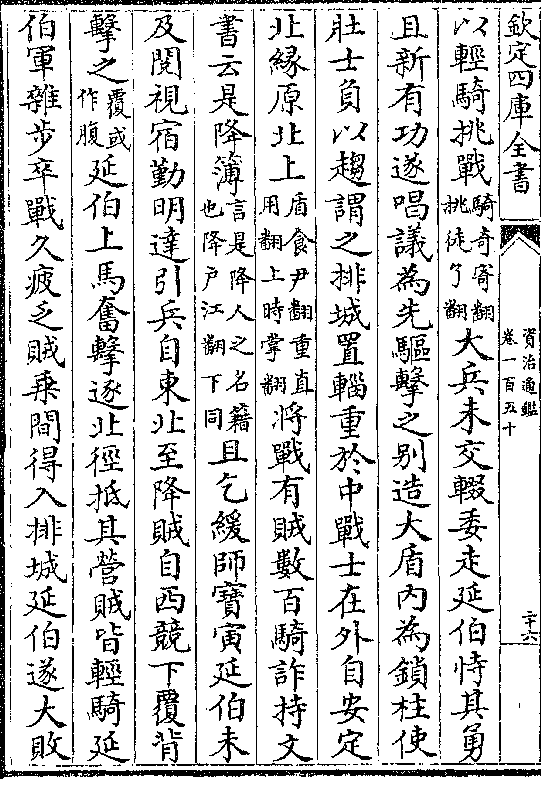 欽定四庫全書
資治通鑑
卷一百五十
二十六
以輕騎挑戰騎奇寄翻挑徒了翻大兵未交輙委走延伯恃其勇
且新有功遂唱議為先驅擊之别造大盾内為鎖柱使
壯士負以趨謂之排城置輜重於中戰士在外自安定
北緣原北上盾食尹翻重直用翻上時掌翻將戰有賊數百騎詐持文
書云是降簿言是降人之名籍也降户江翻下同且乞緩師寶寅延伯未
及閱視宿勤明達引兵自東北至降賊自西競下覆背
擊之覆或作腹延伯上馬奮擊逐北徑抵其營賊皆輕騎延
伯軍雜步卒戰久疲乏賊乗間得入排城延伯遂大敗